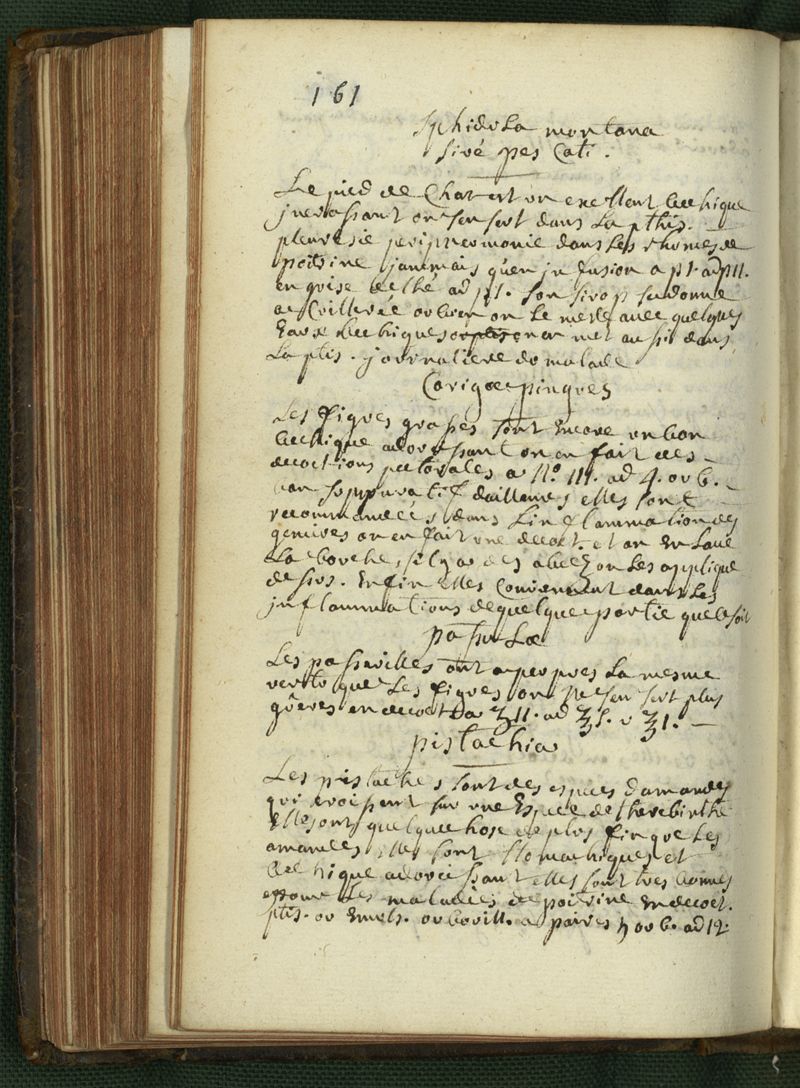 161
Sphidola montana
sivé pes Cati.
Le pied de Chat est un excellent bechique
incrassant on sen sert dans la pthis.
pleuresie peripneumonie dans les rhomes de
poitrine jammais qu'en infusion a p1. ad p11.
en guise de thé ad son sirop se donne
a Cuillerée ou bien on le mesle avec quelques
bechiques on en met aussi dans
la ptis. journaliere do malade
Caricae pingues
Les figues grases sont encore un bon
bechique adoucissant on en fait des
decoctions pectorales a n.o 111. ad 4. ou 6.
bon suppuratif dailleurs elles sont
recommandées dans linflammation des
gencives on en fait une decoct. et on en lave
la bouche, sil y a des abcez on les applique
dessus. Enfin elles conviennent dans les
inflammations de quelque partie quelle soit
passulae
Les passerilles ont a peu pres la mesme
vertu que les figues on ne sen sert plus
gueres en decoct. a ʒ11. ad ℥s. v ℥1.
pistachia
Les pistaches sont des especes damandes
qui croissent sur une Espece de therebinthe
Elles ont quelque chose de plus fin que les
amandes, elles sont stomachiques et
bechique adoucissant elles sont tres bonnes
pour les maladies de poitrine en decoct.
ptis. ou emuls. ou bouill. a paires ou 6. ad 12.